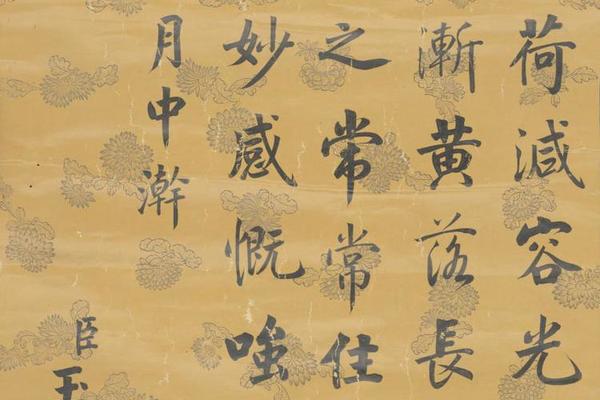 荷減容光
漸黃落長
之常常住
妙感慨嗤
月中澣
臣玉